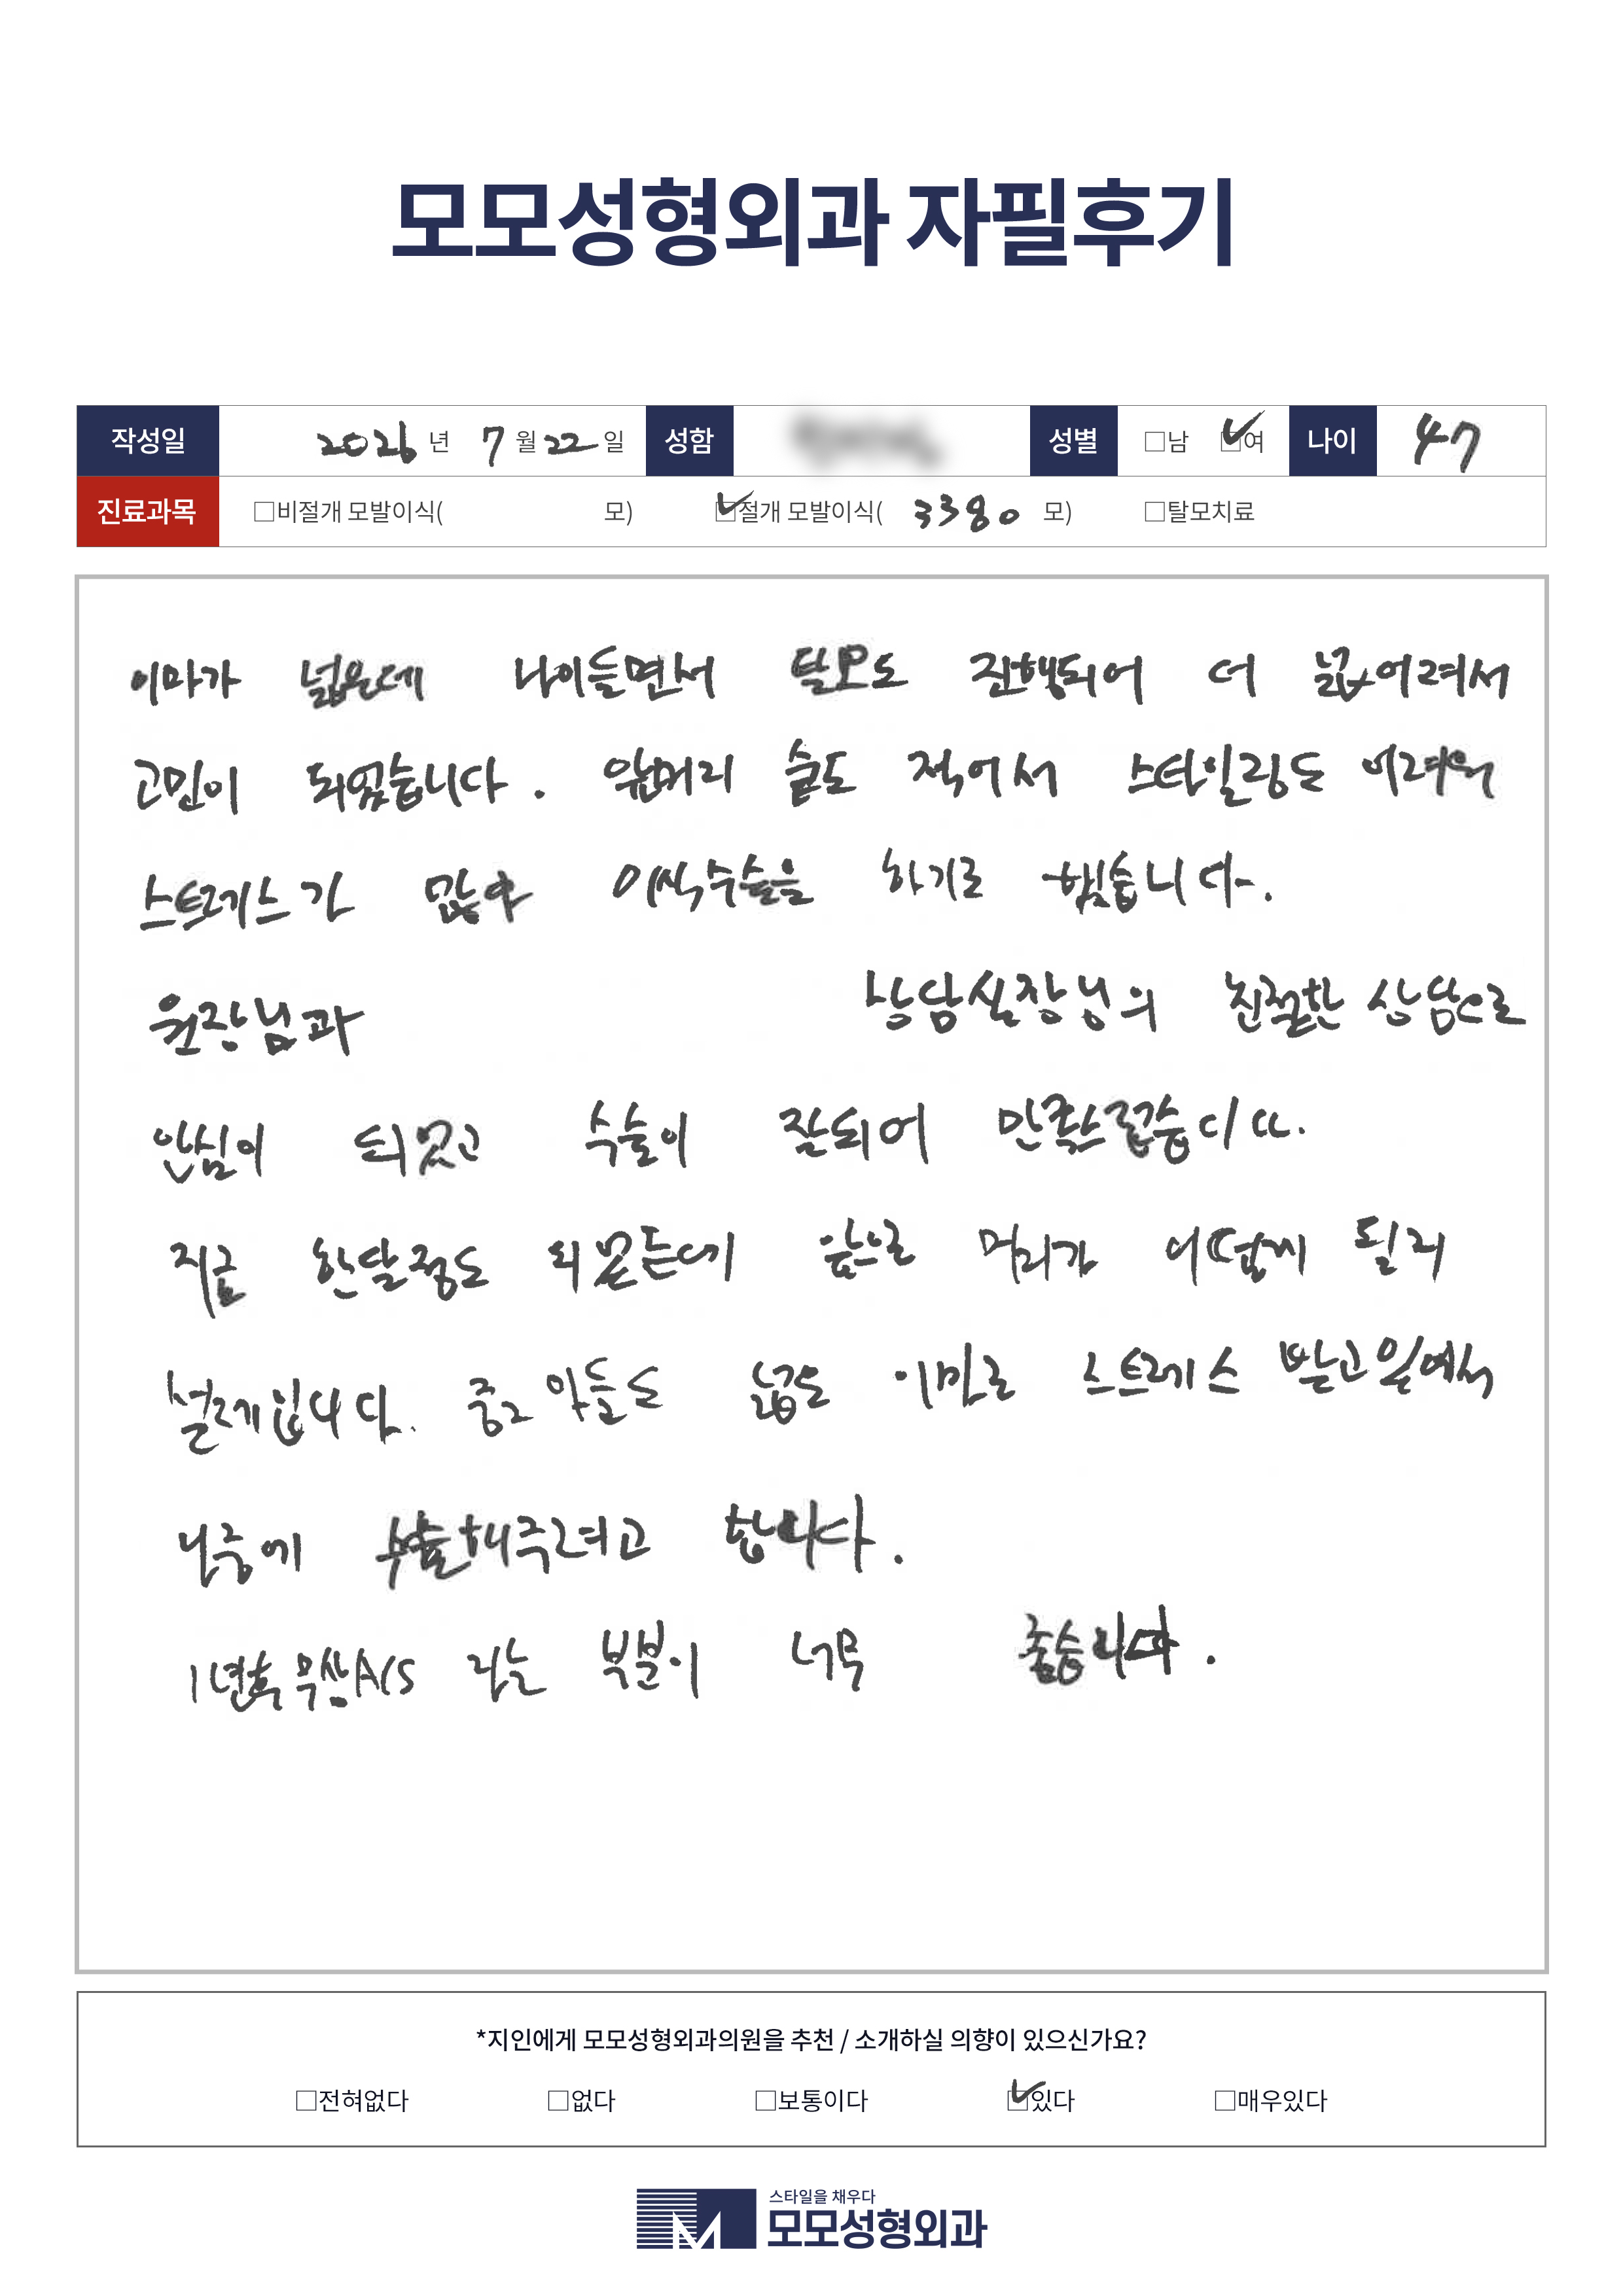 모모성형외과 자필후기
작성일 2026 년 7 월 22 일 성함 성별 □남 ☑여 나이 47
진료과목 □비절개 모발이식( 모) ☑절개 모발이식( 3380 모) □탈모치료
이마가 넓은데 나이들면서 탈모도 진행되어 더 넓어려서
고민이 되었습니다. 앞머리 숱도 적어서 스타일링도 어려워
스트레스가 많아 이식수술을 하기로 했습니다.
원장님과 상담실장님의 친절한 상담으로
안심이 되었고 수술이 잘되어 만족스럽습니다.
지금 한달정도 되었는데 앞으로 머리가 어떻게 될지
설레입니다. 중2 아들도 넓은 이마로 스트레스 받고 있어서
나중에 수술해주려고 합니다.
1년후 무상A/S 라는 부분이 너무 좋습니다.
*지인에게 모모성형외과의원을 추천 / 소개하실 의향이 있으신가요?
□전혀없다 □없다 □보통이다 ☑있다 □매우있다
스타일을 채우다
모모성형외과